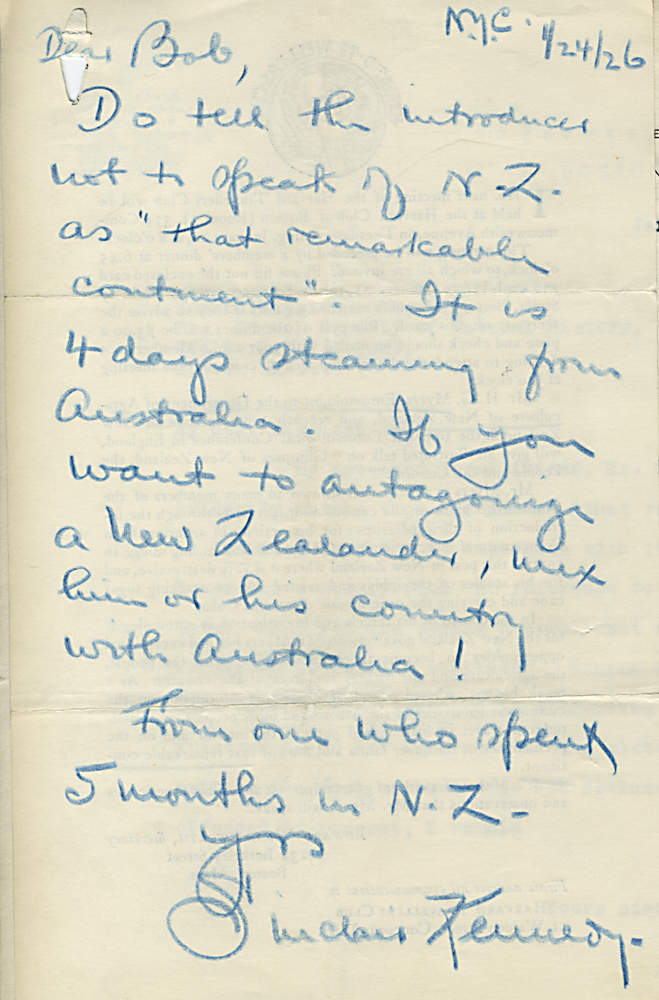 N.Y.C. 1/24/26
Dear Bob,
Do tell the introducer
not to speak of N.Z.
as "that remarkable
continent". It is
4 days steaming from
Australia. If you
want to antagonize
a New Zealander, mix
him or his country
with Australia!
From one who spent
5 months in N.Z.
Yrs
Sinclair Kennedy.